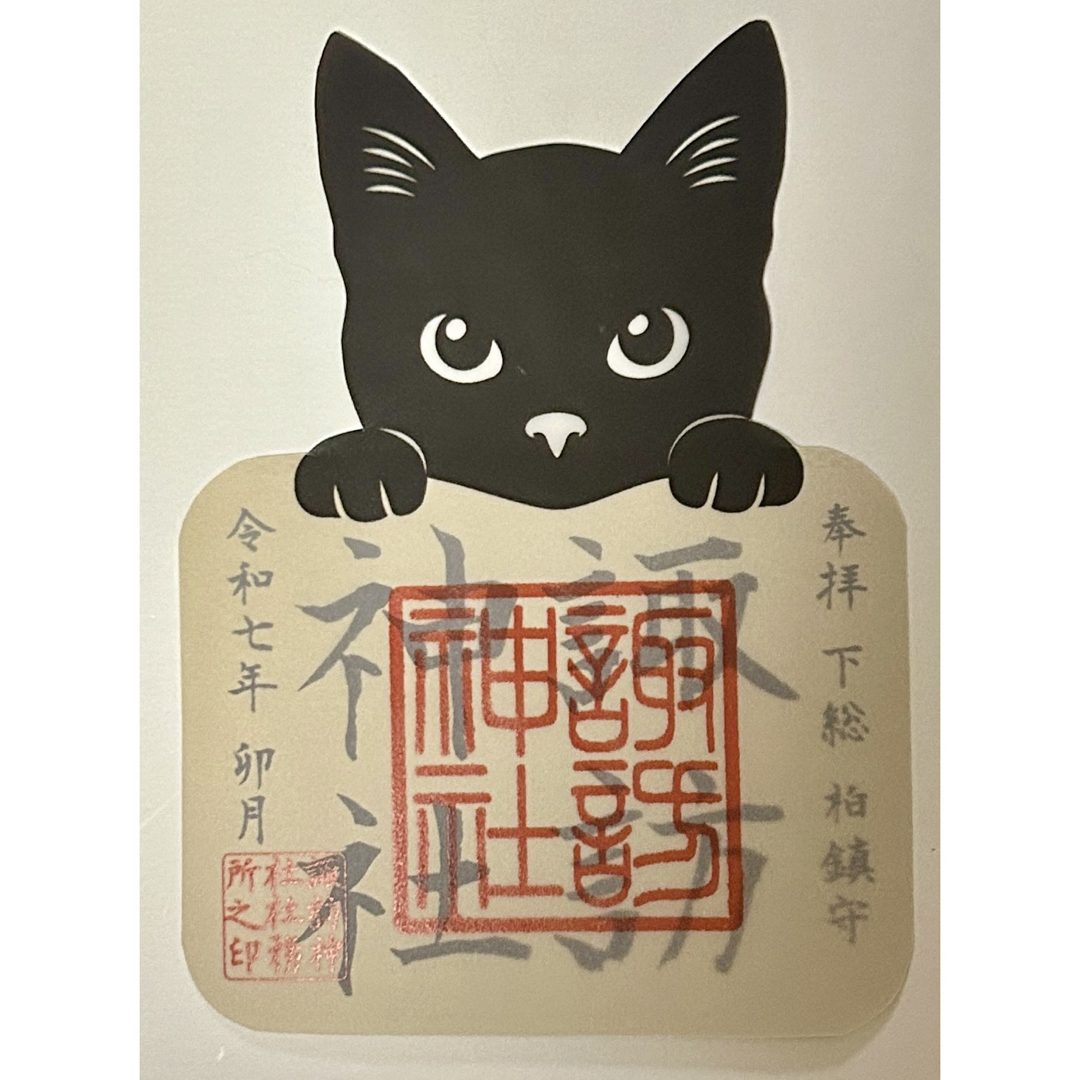 奉拝 下総 柏鎮守
諏訪
神社
諏訪
神社
令和七年 卯月
諏訪神
社社務
所之印